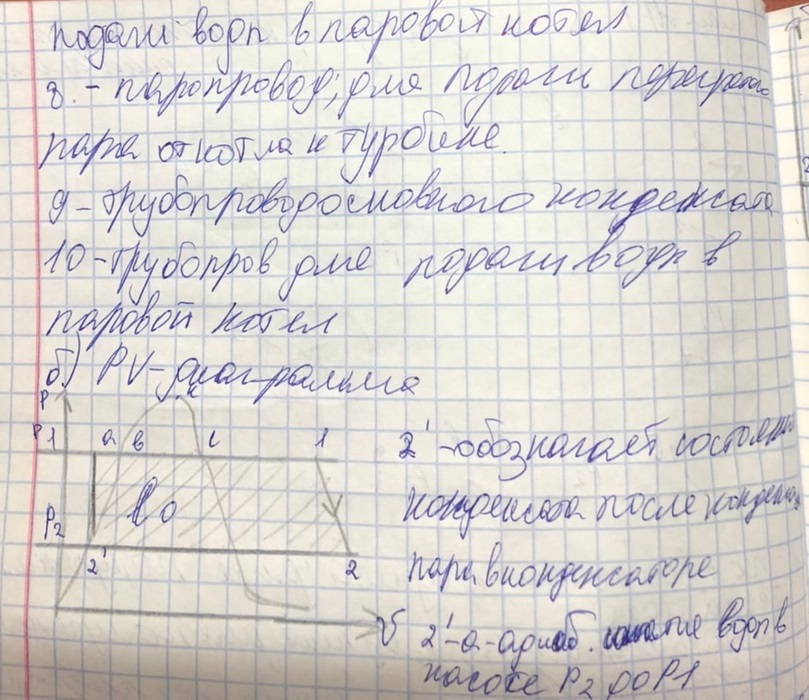 подачи воды в паровой котел
8. - паропровод; для подачи перегретого
пара от котла к турбине.
9 - трубопровод основного конденсата
10 - трубопров для подачи воды в
паровой котел
б) PV-диаграмма
P
к
P1 a в с 1
lо
P2
2' 2
υ
2' - обозначает состояни
конденсата после конденса
пара в конденсаторе
2'-а - адиаб. сжатие воды в
насосе P2 до P1